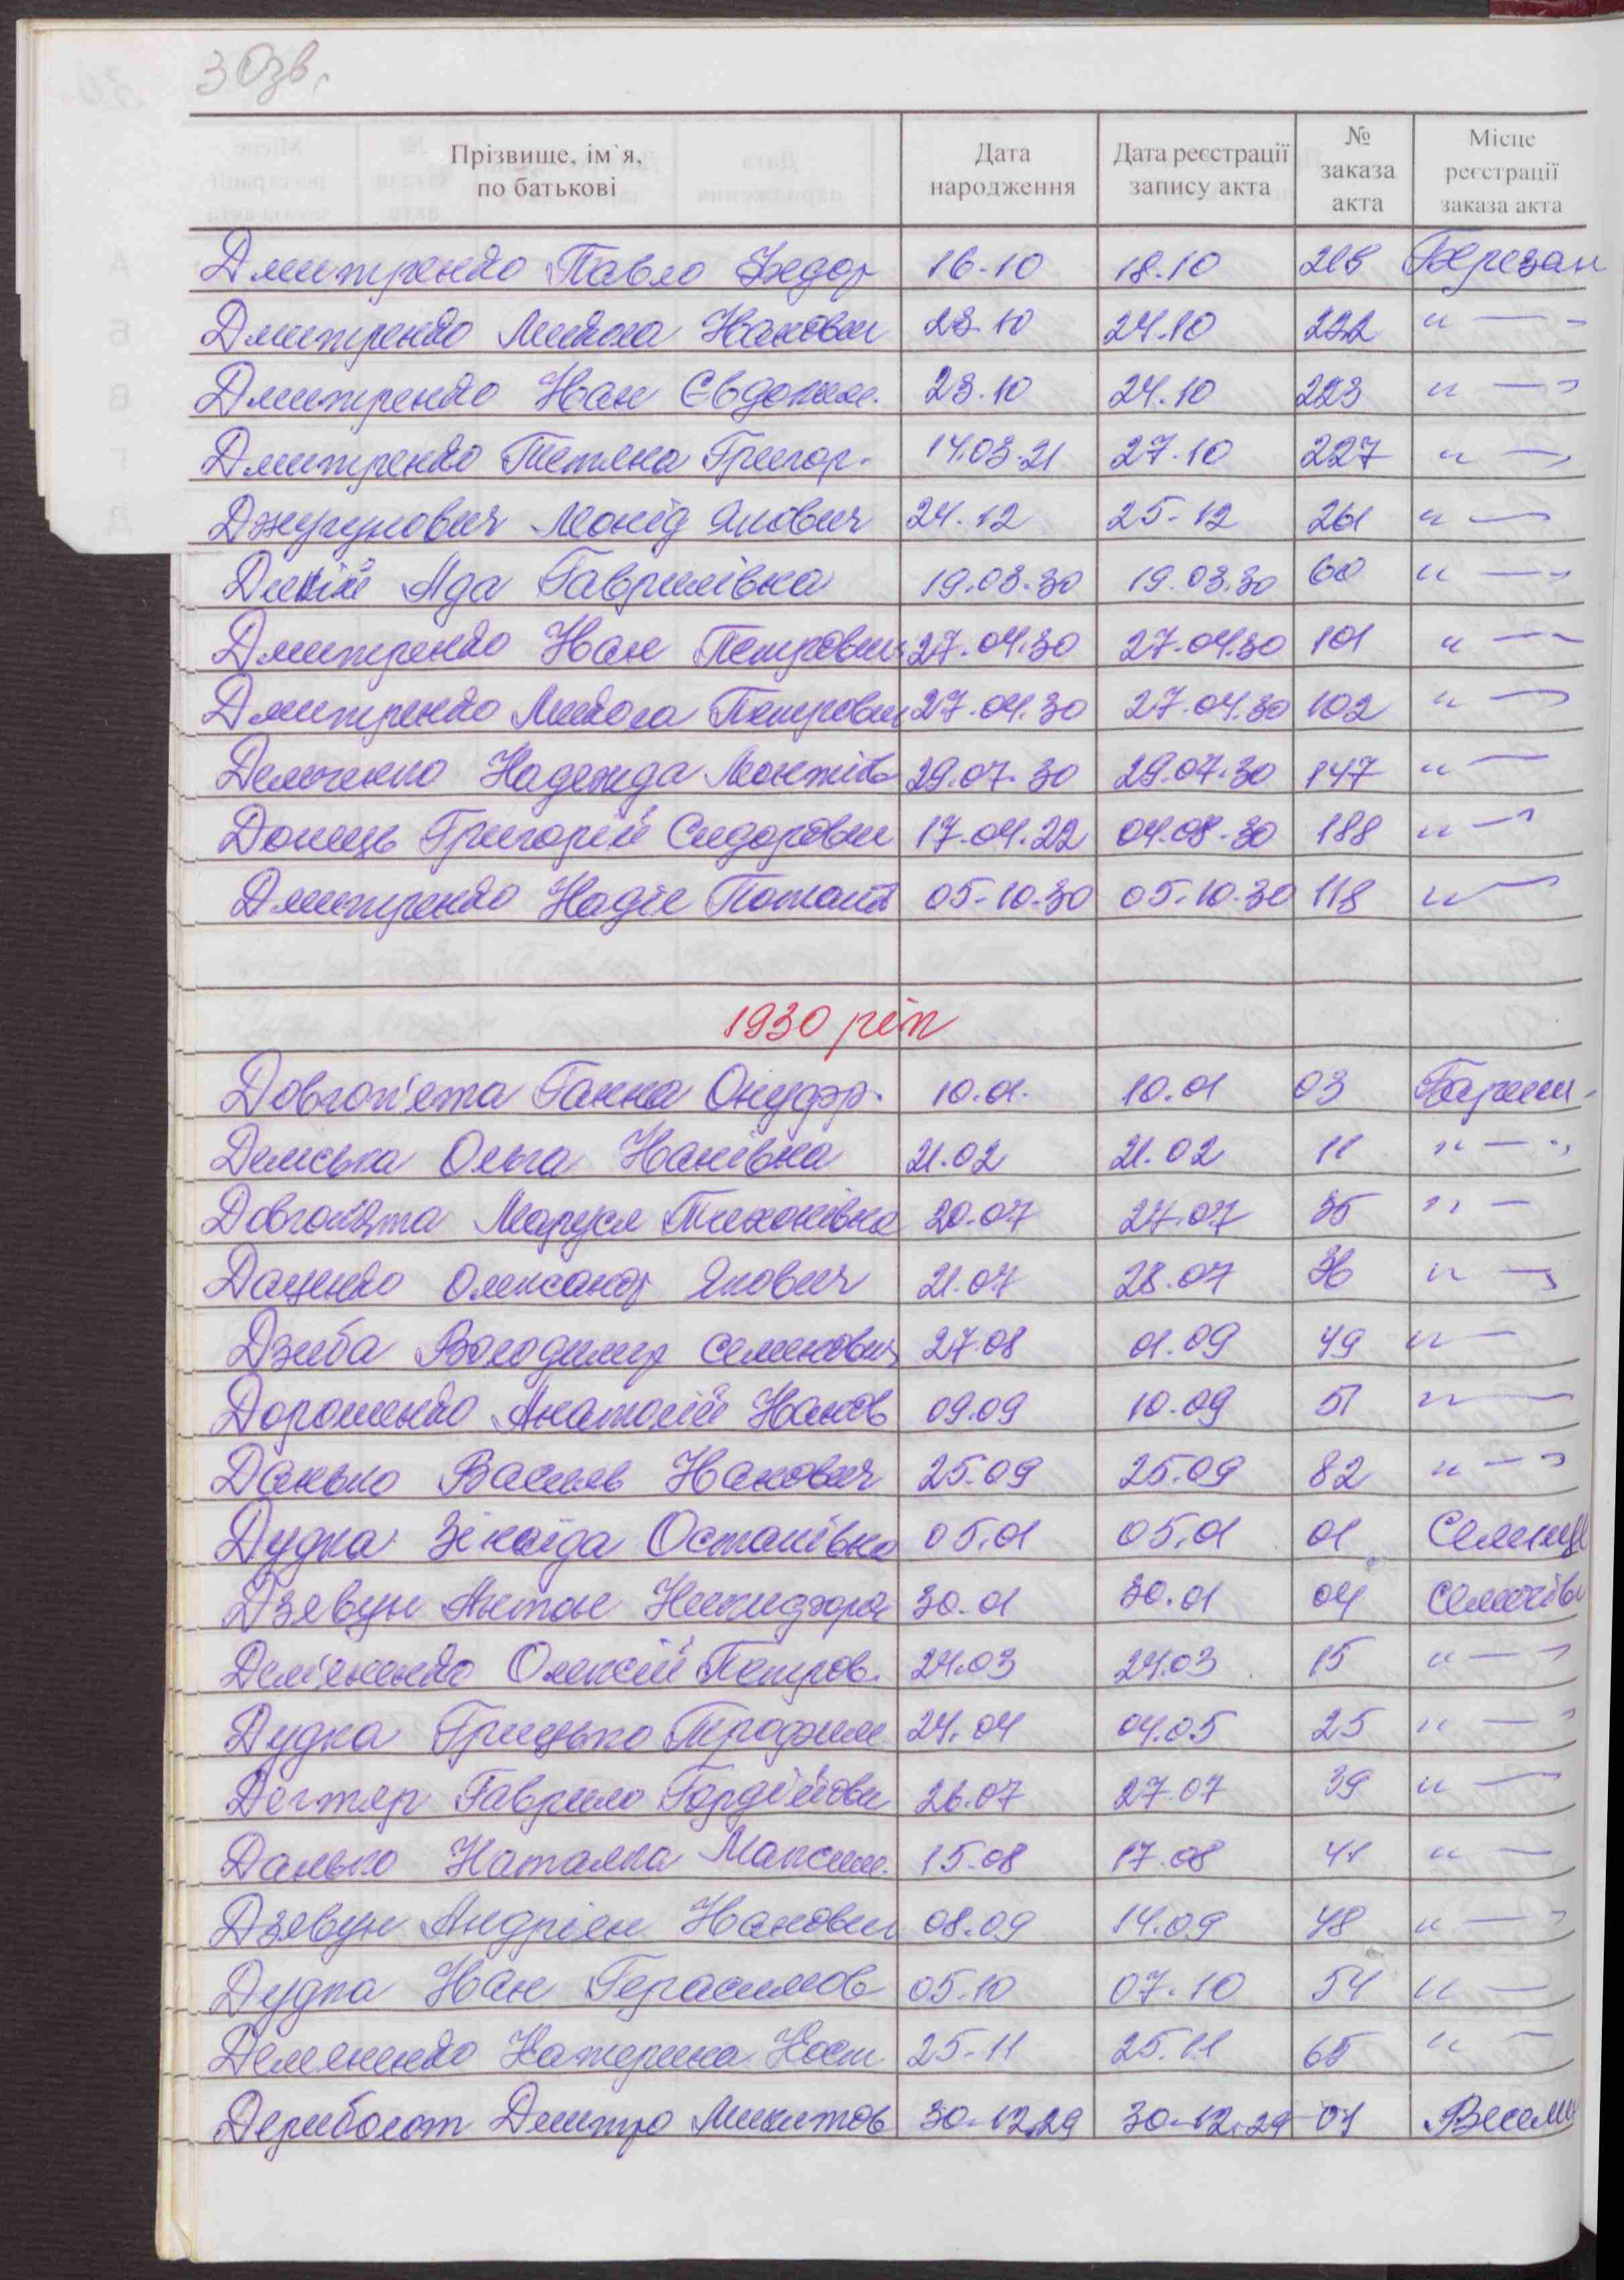 30зв.
Прізвище, ім`я, по батькові | Дата народження | Дата реєстрації запису акта | № заказа акта | Місце реєстрації заказа акта
Дмитренко Павло Федор 16.10 18.10 215 Березан
Дмитренко Микола Іванович 23.10 24.10 222 "—"
Дмитренко Іван Євдоким. 23.10 24.10 223 "—"
Дмитренко Тетяна Григор. 14.03.21 27.10 227 "—"
Джугунович Леонід Якович 24.12 25.12 261 "—"
Дикій Ада Гаврилівна 19.03.30 19.03.30 60 "—"
Дмитренко Іван Петрович 27.04.30 27.04.30 101 "—"
Дмитренко Микола Петрович 27.04.30 27.04.30 102 "—"
Демченко Надежда 29.07.30 29.07.30 147 "—"
Донець Григорій Сидорович 17.04.22 04.08.30 188 "—"
Дмитренко Надія Потапів 05.10.30 05.10.30 118 "—"
1930 рік
Довгоп'ята Ганна Онуфр. 10.01. 10.01 03
Демська Ольга Іванівна 21.02 21.02 11 "—"
Довгоп'ята Маруся Тихонівна 20.07 27.07 35 "—
Даценко Олександр Якович 21.07 28.07 36 "—"
Дзюба Володимир Семенович 27.08 01.09 49 "—
Дорошенко Анатолій Іванов 09.09 10.09 51 "—
Данько Василь Іванович 25.09 25.09 82 "—"
Дудка Зінаїда Остапівна 05.01 05.01 01
Дзявун Антон Никифоров 30.01 30.01 04 Семенівк
Дем'яненко Олексій Петров. 24.03 24.03 15 "—"
Дудка Грицько Трофим 24.04 04.05 25 "—"
Дегтяр Гаврило Гордійови 26.07 27.07 39 "—
Данько Наталка Максим. 15.08 17.08 41 "—
Дзявун Андріян Іванович 08.09 14.09 48 "—"
Дудка Іван Герасимов 05.10 07.10 54 "—
Демяненко Катерина Кост. 25.11 25.11 65 "—
Дериболот Дмитро Микитов 30.12.29 30.12.29 01